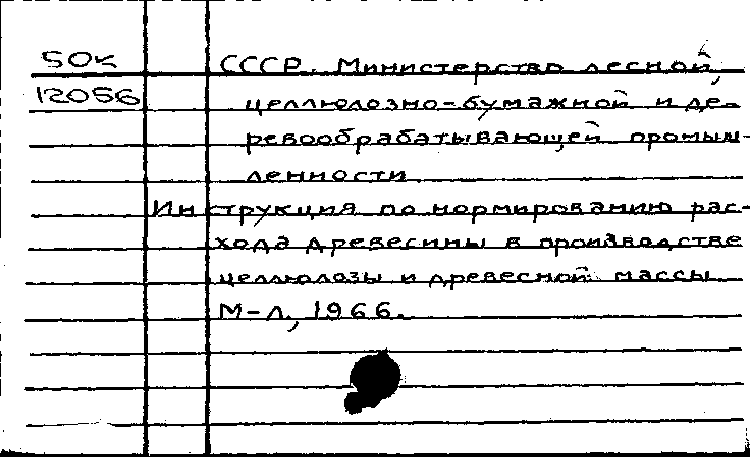 50к СССР. Министерство лесной,
12056 целлюлозно-бумажной и де-
ревообрабатывающей промыш-
ленности
Инструкция по нормированию рас-
хода древесины в производстве
целлюлозы и древесной массы.
М-Л, 1966.